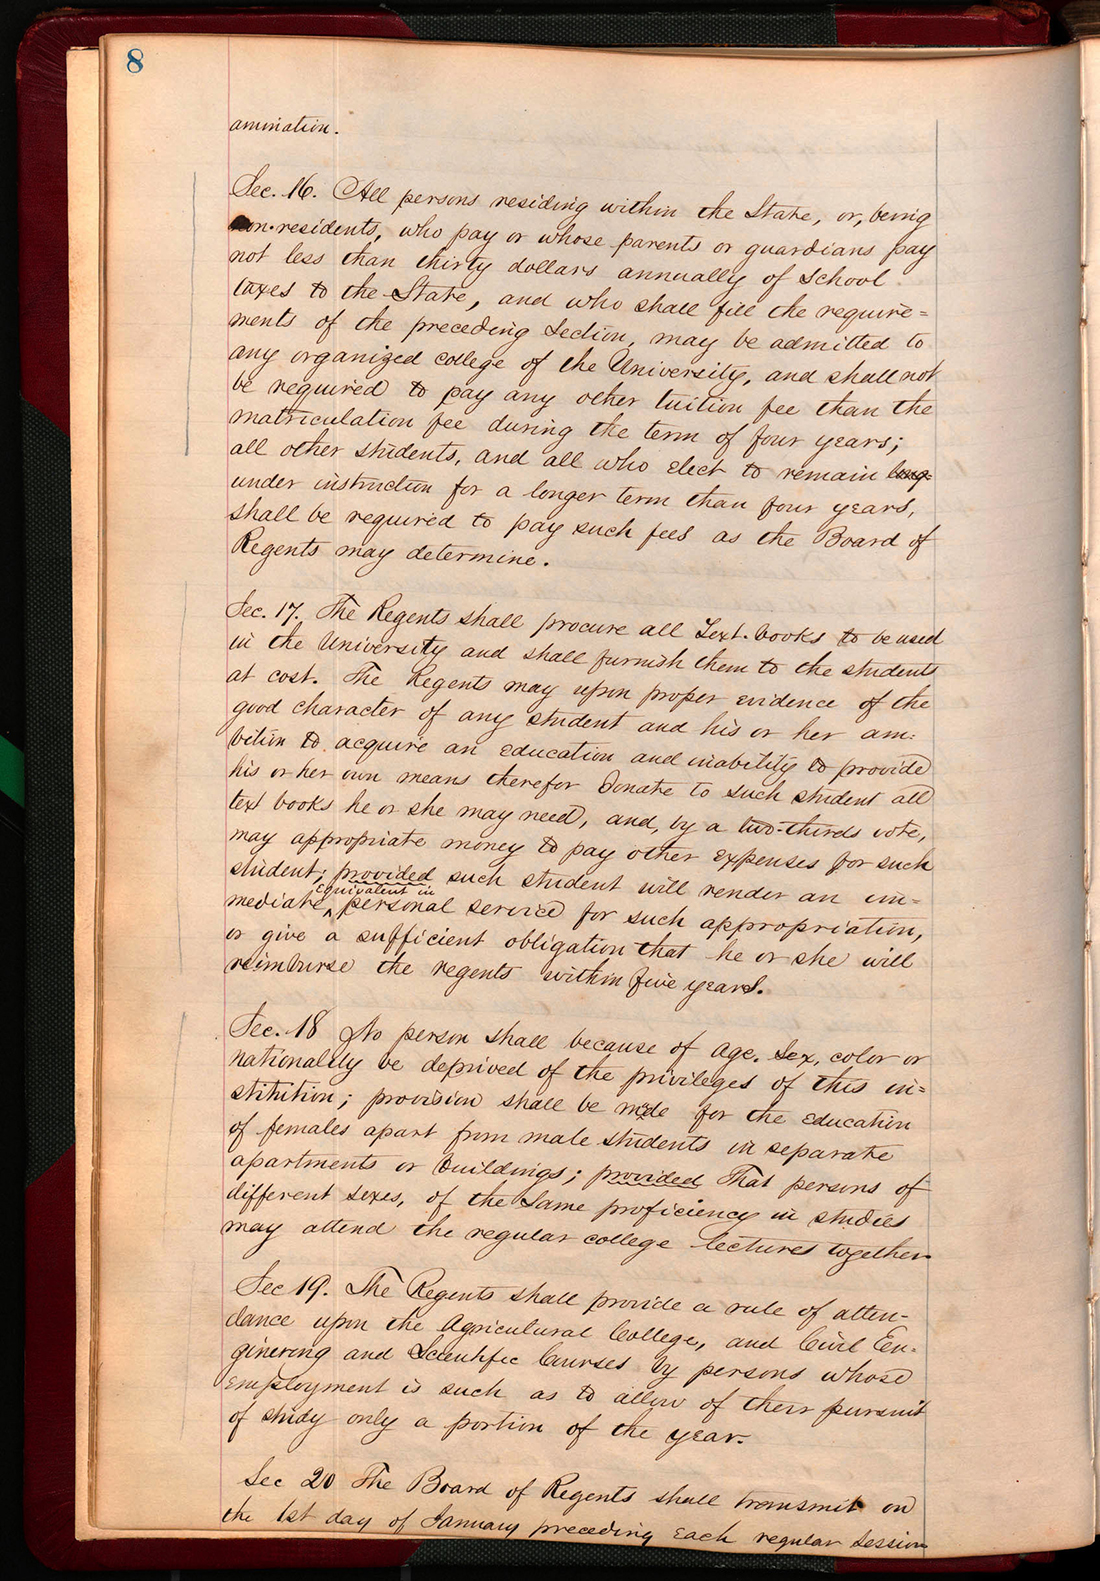 8
amination.
Sec. 16. All persons residing within the State, or, being
non-residents, who pay or whose parents or guardians pay
not less than thirty dollars annually of School
taxes to the State, and who shall fill the require=
ments of the preceding Section, may be admitted to
any organized college of the University, and shall not
be required to pay any other tuition fee than the
matriculation fee during the term of four years;
all other students, and all who elect to remain long-
under instruction for a longer term than four years,
shall be required to pay such fees as the Board of
Regents may determine.
Sec. 17. The Regents shall procure all Text-books to be used
in the University and shall furnish them to the students
at cost. The Regents may upon proper evidence of the
good character of any student and his or her am=
bition to acquire an education and inability to provide
his or her own means therefor Donate to such student all
text books he or she may need, and, by a two-thirds vote,
may appropriate money to pay other expenses for such
student; provided such student will render an im=
equivalent in
mediate, personal service for such appropriation,
or give a sufficient obligation that he or she will
reimburse the regents within five years.
Sec. 18 No person shall because of age. Sex, color or
nationality be deprived of the privileges of this in=
stitution; provision shall be made for the education
of females apart from male students in separate
apartments or buildings; provided That persons of
different sexes, of the same proficiency in studies
may attend the regular college lectures together
Sec 19. The Regents shall provide a rule of atten-
dance upon the Agricultural College, and Civil En-
gineering and Scientific Courses by persons whose
employment is such as to allow of their pursuit
of study only a portion of the year.
Sec 20 The Board of Regents shall transmit on
the 1st day of January preceding each regular session